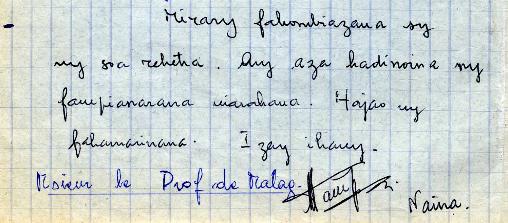 Mirary fahombiazana sy
ny soa rehetra. Ary aza hadinoina ny
fampianarana narahana. Hajao ny
fahamarinana. Izay ihany.
Msieur le Prof de Malag.
Naina.